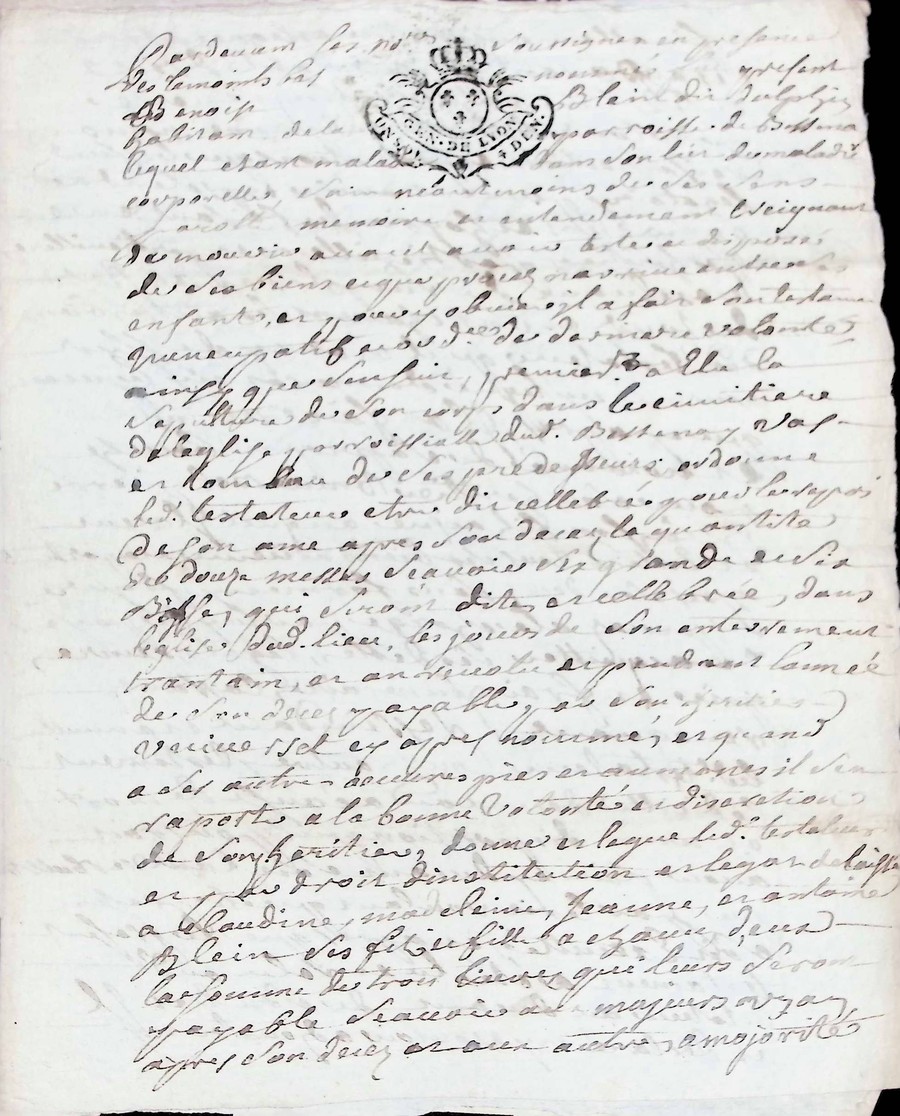 Pardevant les no.res soussignes en presence
des temoins bas nommés present
Benoist Blein dit
habitant de la parroisse de Bessena
lequel etant malade dans son lit de maladie
corporelle, sain neantmoins de ses sens
parolle memoire et entendement Creignant
de mourir avant avoir testé et disposé
de ses biens et que procez narrive entre ses
enfants, et pour y obvier il a fait son testame
nuncupatif et ord.ce de derniere volonté
ainsy que sensuit, premier.t a Elu la
sepulture de son corps dans le cimitiere
de leglise parroissialle dud. Bessenay vas
et tombau de ses predesseurs, ordonne
led. testateur etre dit cellebré pour le repos
de son ame apres son decez la quantité
de douze messes scavoir six grande et six
Basse, qui seront dite et cellebrée, dans
leglise dud. lieu, les jours de son enterrement
trantain, et an revolu et pendant lannéé
de son decez payable par son heritier
universel cy apres nommé, et quand
a ses autre oeuvres pies et aumones il sen
raporte a la bonne volonté et discretion
de son heritier, donne et legue led. testateur
et par droit dinstitution et legat delaisse
a claudine, madeleine, Jeanne, et antoine
Blein ses fit et fille a chacun deux
la somme de trois livres qui leurs seront
payable scavoir aux majeurs
apres son decez et aux autre, a majorité
GEN. DE LION